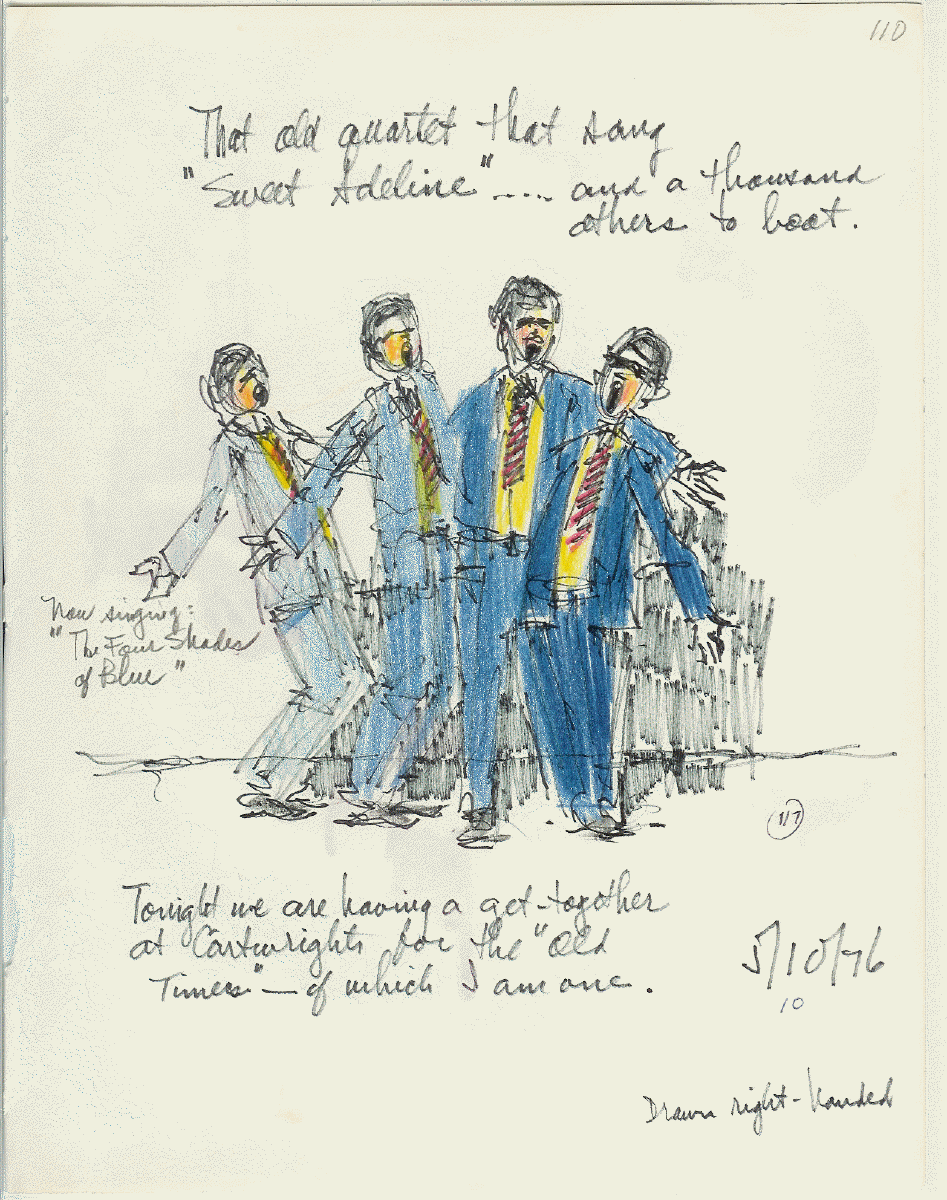 110
That old quartet that sang
"Sweet Adeline"..... and a thousand
others to boot.
Now singing:
"The Four Shades
of Blue"
117
Tonight we are having a get-together
at Cartwrights for the "Old
Timers" — of which I am one.
5/10/76
10
Drawn right-handed